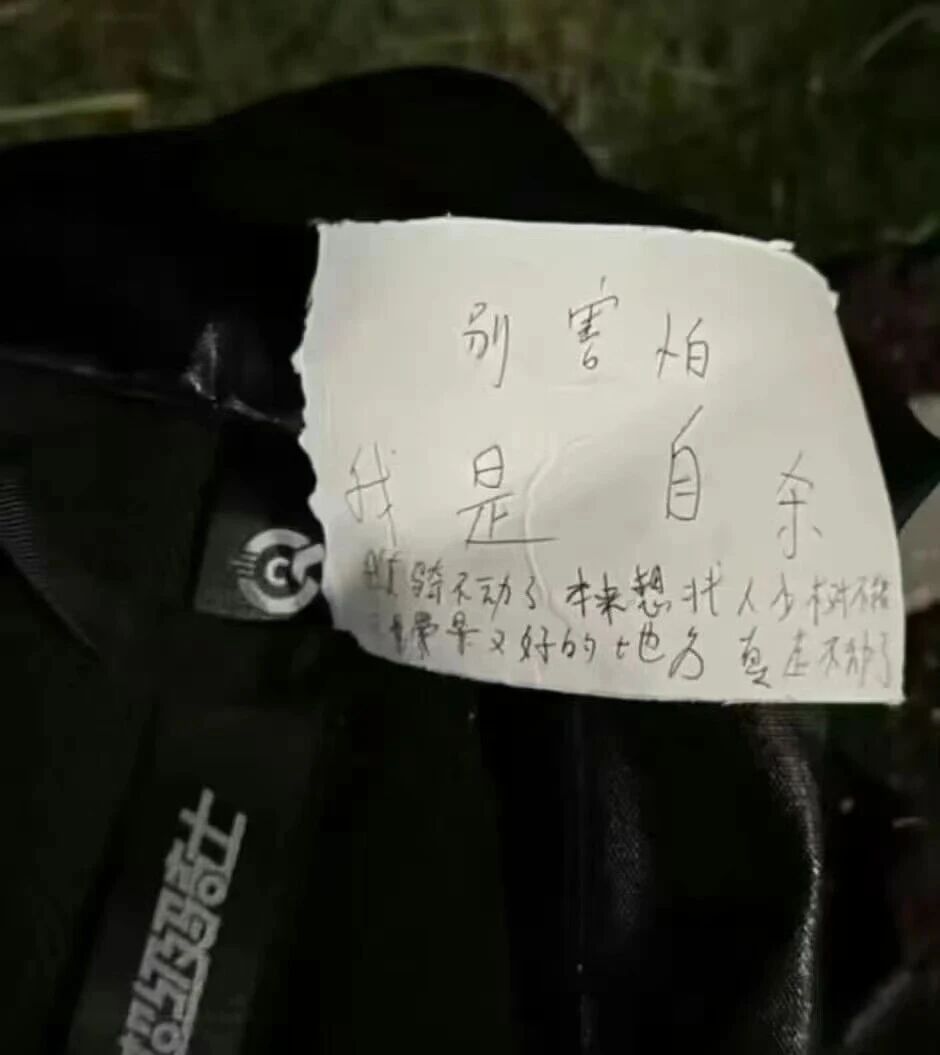 别害怕
我是 自杀
骑不动了 本来想找人少
风景又好的地方 真走不动了
骑士